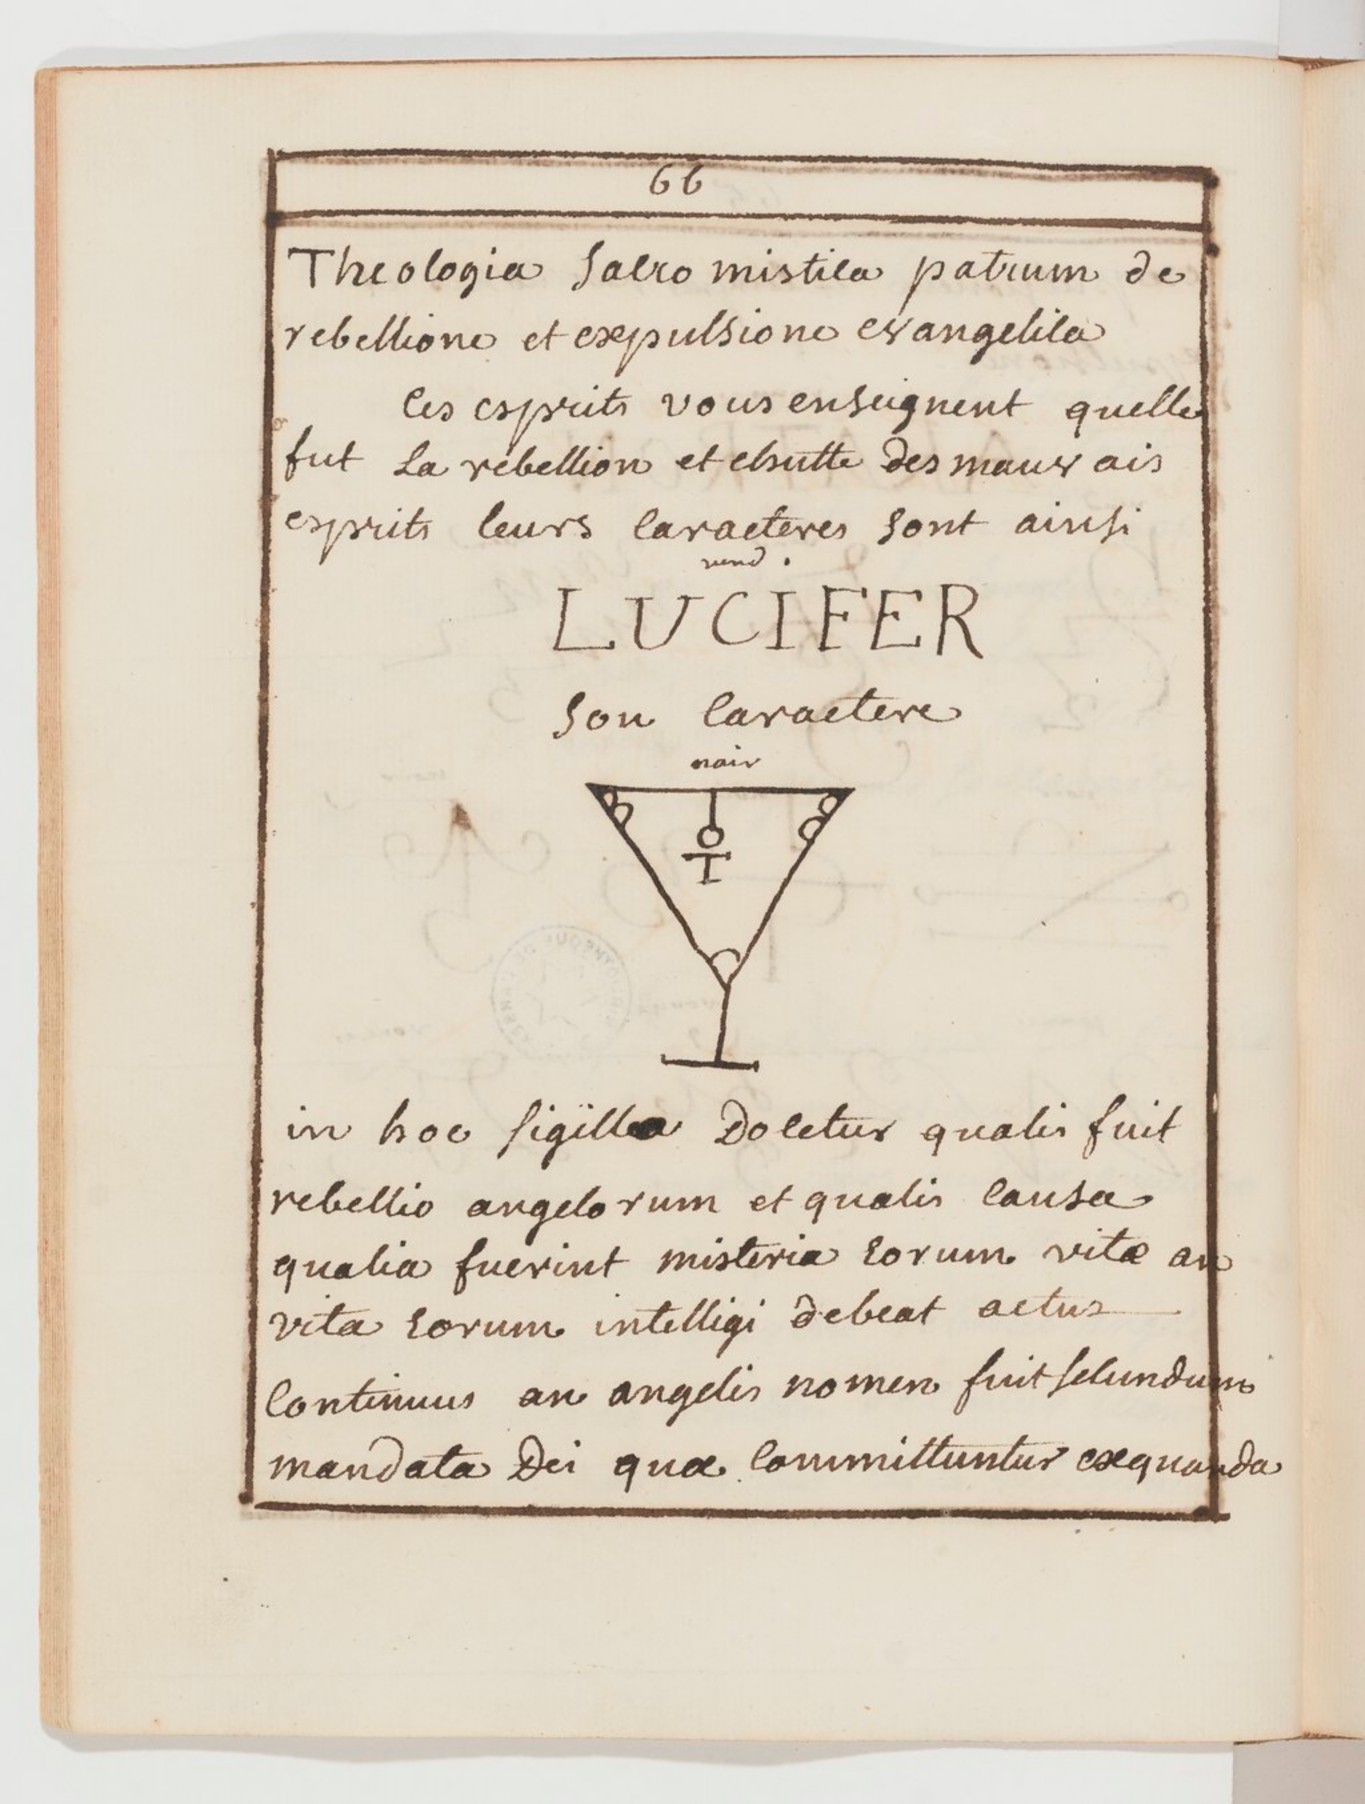 66
Theologia Sacro mistica patrum de
rebellione et expulsione evangelica
Ces esprits vous enseignent quelle
fut la rebellion et chutte des mauvais
esprits leurs caracteres sont ainsi
LUCIFER
Son caractere
noir
in hoc sigillo Docetur qualis fuit
rebellio angelorum et qualis causa
qualia fuerint misteria eorum vitæ an
vita eorum intelligi debeat actus
continuus an angelis nomen fuit secundum
mandata Dei quæ committuntur exequanda